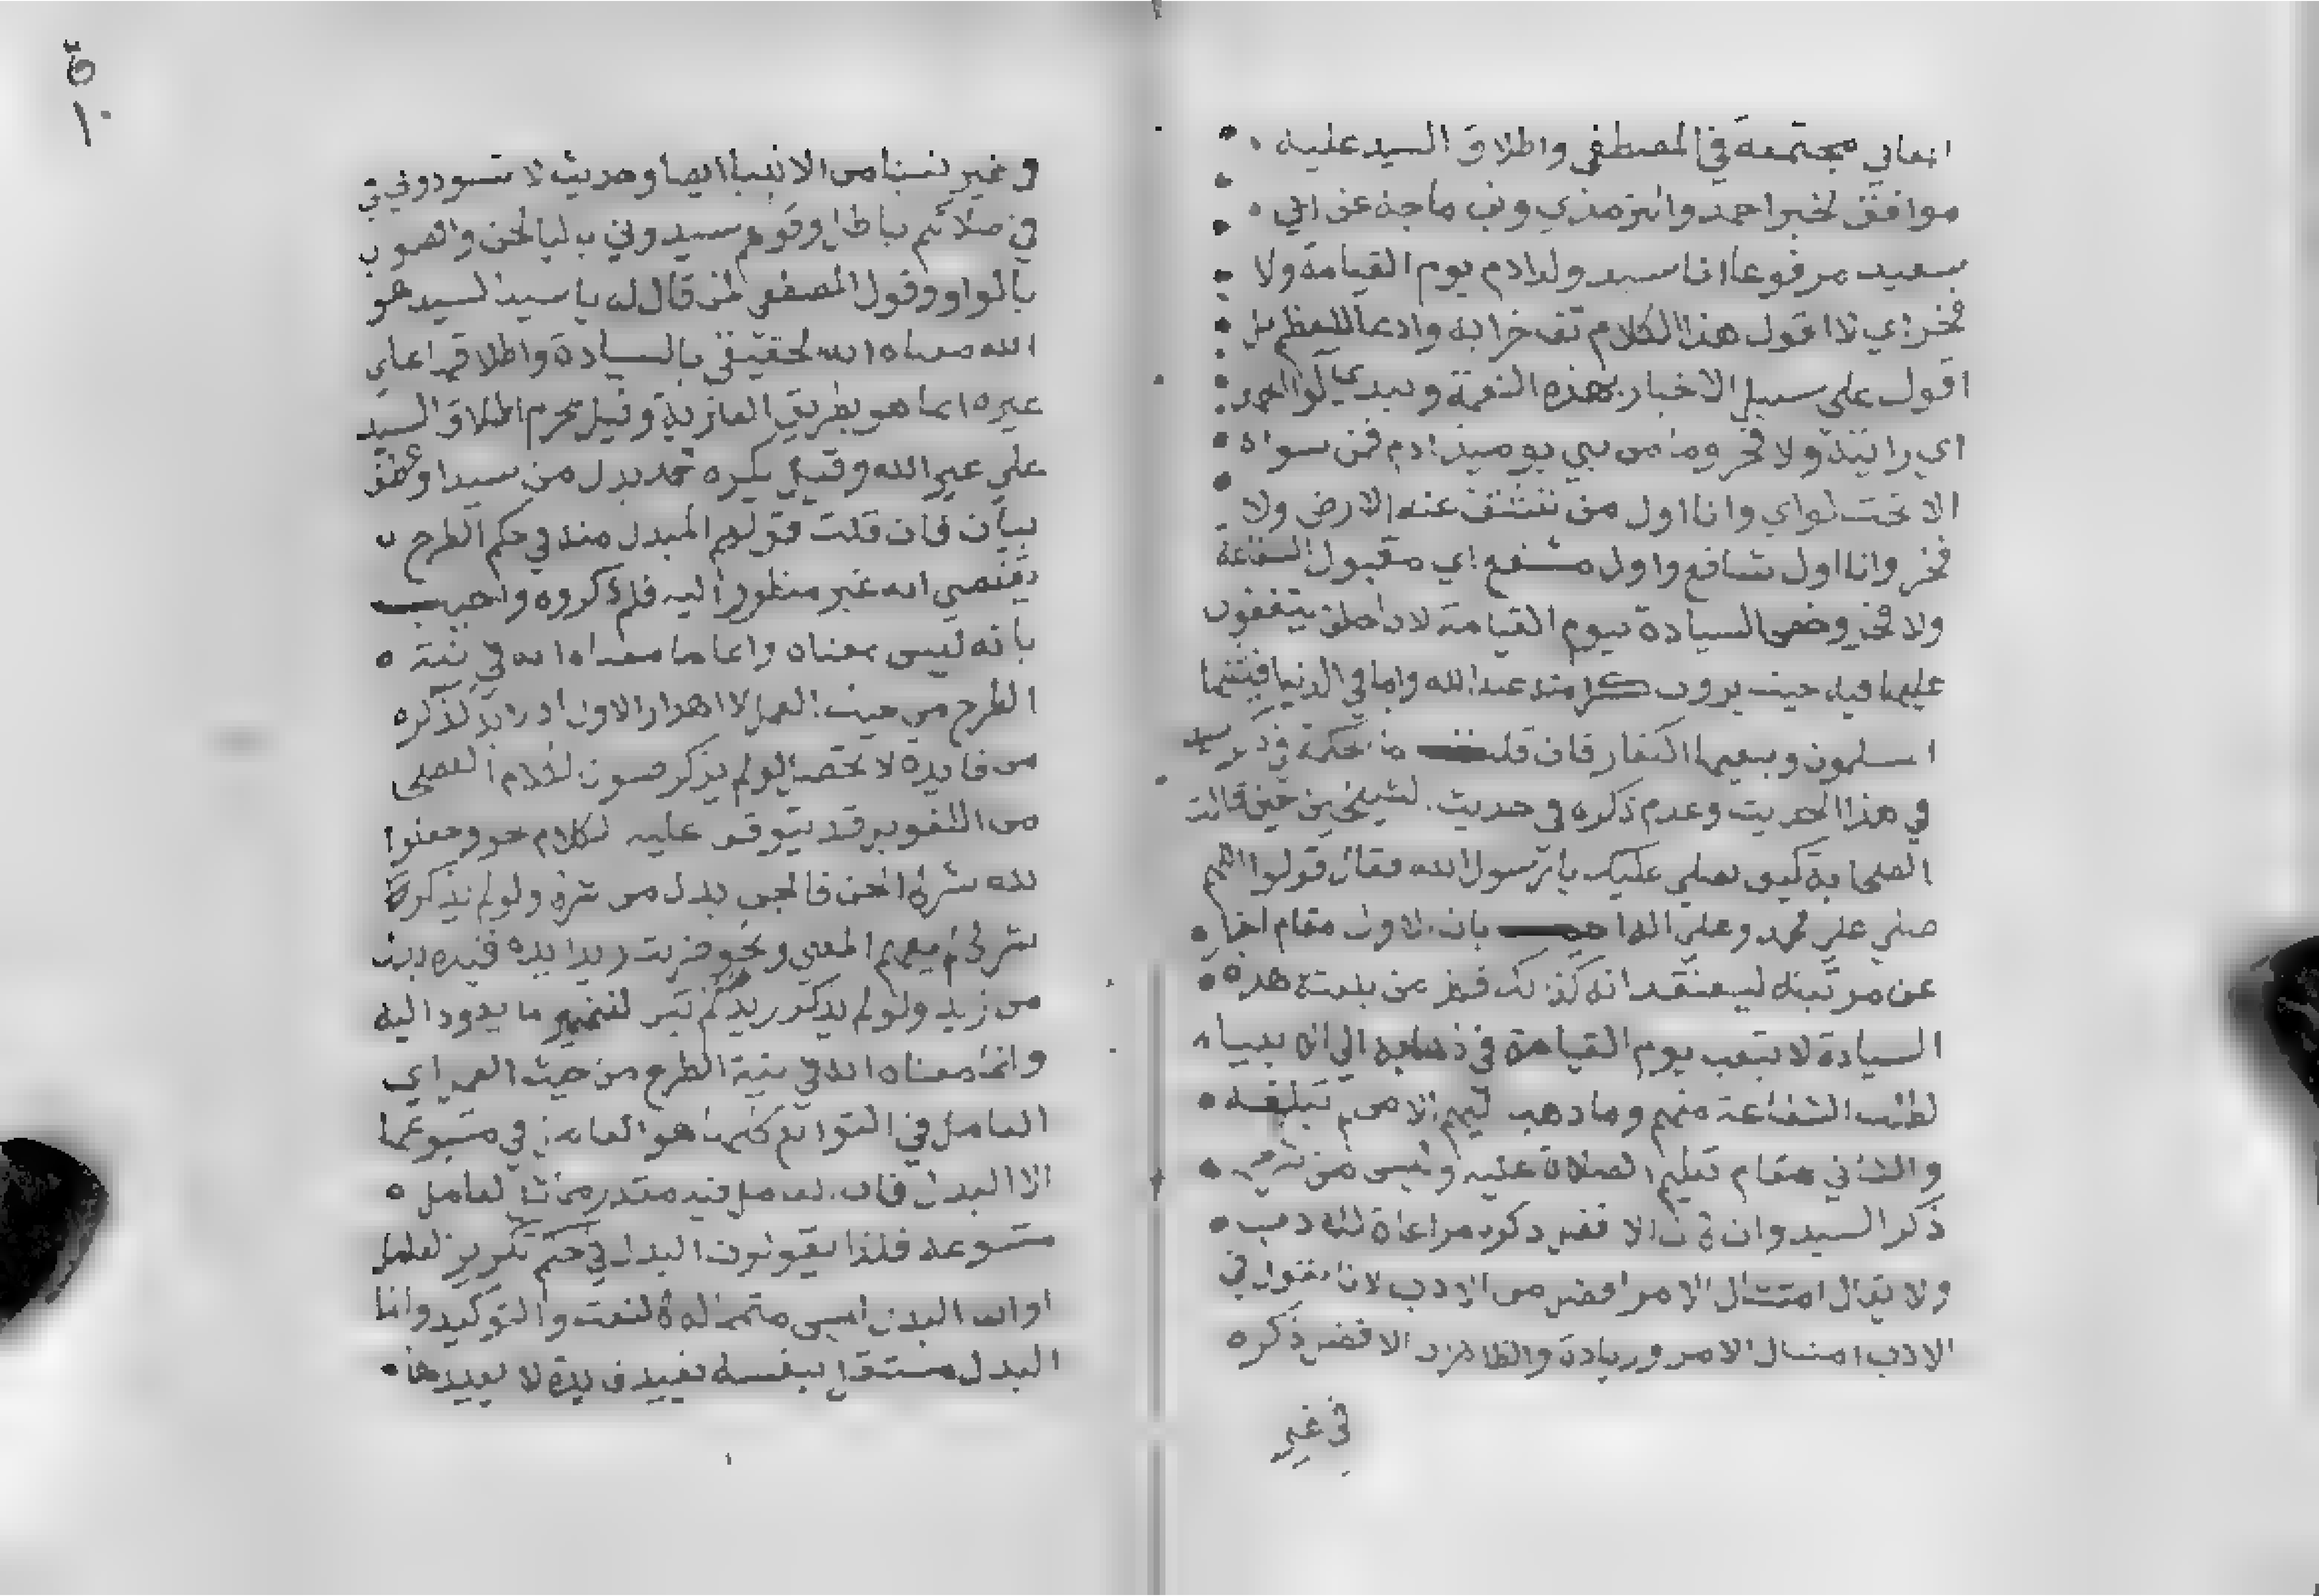 المعاني مجتمعة في المصطفى واطلاق السيد عليه
موافق لخبر احمد والترمذي وابن ماجه عن ابي
سعيد مرفوعا انا سيد ولد ادم يوم القيامة ولا
فخر اي لا اقول هذا الكلام تفاخرا به وادعا للعظم بل
اقول علي سبيل الاخبار بهذه النعمة وبيدي لوا الحمد
اي رايته ولا فخر وما من نبي يوميذ ادم فمن سواه
الا تحت لواي وانا اول من تنشق عنه الارض ولا
فخر وانا اول شافع واول مشفع اي مقبول الشفاعة
ولا فخر وخص السيادة بيوم القيامة لان الخلق يتفقون
عليها فيه حيث يرون كرامته عند الله واما في الدنيا فيثبتها
المسلمون وينفيها الكفار فان قلت ما الحكمة في ذكر سيد
في هذا الحديث وعدم ذكره في حديث الشيخين حين قالت
الصحابة كيف نصلي عليك يا رسول الله فقال قولوا اللهم
صلي علي محمد وعلي اله اجيب بان الاول مقام اخبار
عن مرتبته ليعتقد انه كذلك فمن بلغته هذه
السيادة لا يتعب يوم القيامة في ذهابه الي الانبياء
لطلب الشفاعة منهم وما ذهب اليهم الا من لم تبلغه
والثاني مقام تعليم الصلاة عليه وليس من
ذكر السيد وان كان الافضل ذكره مراعاة للادب
ولا يقال امتثال الامر افضل من الادب لانا نقول في
الادب امتثال الامر وزيادة والظاهر ان الافضل ذكره
في غير
ق
١٠
و غير نبينا من الانبيا ايضا وحديث لا تسودوني
في صلاتكم باطل وقولهم سيدوني باليا لحن والصواب
بالواو وقول المصطفى لمن قال له يا سيد السيد هو
الله معناه انه الحقيقي بالسيادة واطلاقها علي
غيره انما هو بطريق العارية وقيل يحرم اطلاق السيد
علي غير الله وقيل يكره محمد بدل من سيد او عطف
بيان فان قلت قولهم المبدل منه في حكم الطرح
يقتضي انه غير منظور اليه فلم ذكروه واجيب
بانه ليس معناه وانما معناه انه في نية
الطرح من حيث العمل لا اهدار الاول اذ لا بد لذكره
من فايدة لا تحصل لو لم يذكر صون الكلام الفصيح
من اللغو بل قد يتوقف عليه الكلام نحو وجعلوا
لله شركا الجن فالجن بدل من شركا ولو لم يذكر
شركا لم يفهم المعني ونحو ضربت زيدا يده فيده بدل
من زيد ولو لم يذكر زيد لم يكن للضمير ما يعود اليه
وانما معناه انه في نية الطرح من حيث العمل اي
العامل في التوابع كلها هو العامل في متبوعها
الا البدل فان العامل فيه مقدر من العامل
متبوعه فلذا يقولون البدل في حكم تكرير العامل
او ان البدل ليس متمما له كالنعت والتوكيد وانما
البدل مستقل بنفسه يفيد فايدة لا يفيدها